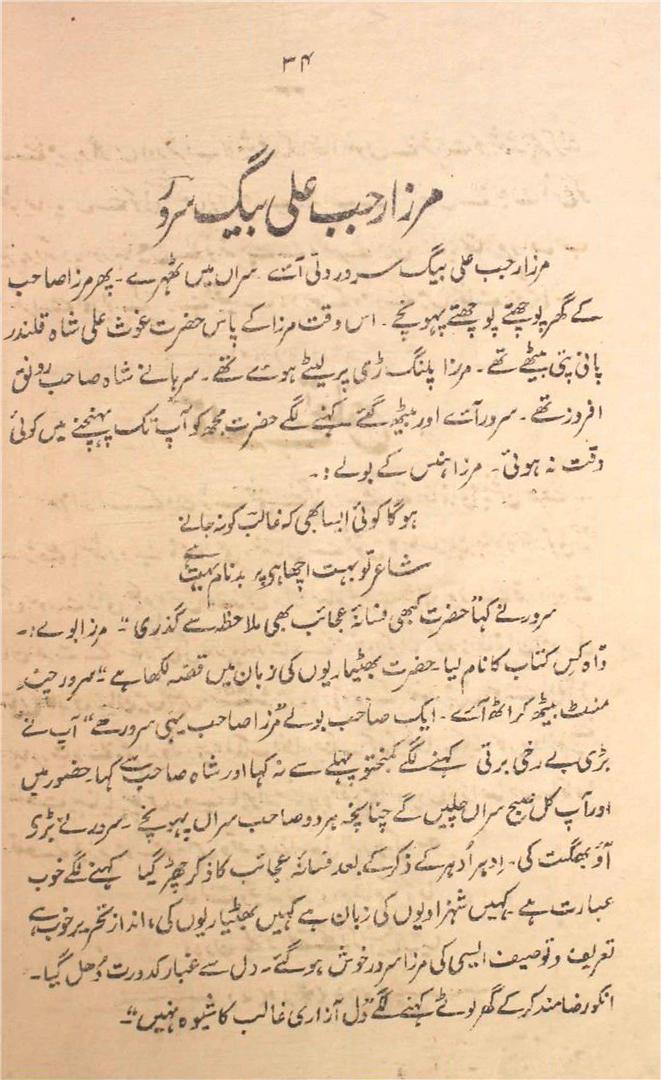 ۳۴
مرزا رجب علی بیگ سرور
مرزا رجب علی بیگ سرور دتی آئے سراں میں ٹھہرے۔ پھر مرزا صاحب
کے گھر پوچھتے پوچھتے پہونچے۔ اس وقت مرزا کے پاس حضرت غوث علی شاہ قلندر
پانی پتی بیٹھے تھے۔ مرزا پلنگ ڑی پر لیٹے ہوے تھے۔ سرہانے شاہ صاحب رونق
افروز تھے۔ سرور آئے اور بیٹھ گئے کہنے لگے حضرت مجھ کو آپ تک پہنچنے میں کوئی
دقت نہ ہوئی۔ مرزا ہنس کے بولے :۔
ہوگا کوئی ایسا بھی کہ غالب کو نہ جانے
شاعر تو بہت اچھا ہی پر بدنام بہت ہے
سرور نے کہا "حضرت کبھی فسانۂ عجائب بھی ملاحظہ سے گذری"۔ مرزا بوے :۔
واہ کس کتاب کا نام لیا۔ حضرت بھٹیاریوں کی زبان میں قصّہ لکھا ہے"۔ سرور چند
منٹ بیٹھ کر اٹھ آئے۔ ایک صاحب بولے "مرزا صاحب یہی سرور تھے" آپ نے
بڑی بے رخی برتی کہنے لگے کمبختو پہلے سے نہ کہا اور شاہ صاحب سے کہا۔ حضور میں
اور آپ کل صبح سراں چلیں گے چنانچہ ہر دو صاحب سراں پہونچے۔ سرور نے بڑی
آؤ بھگت کی۔ اِدہر اُدہر کے ذکر کے بعد فسانۂ عجائب کا ذکر چھڑ گیا کہنے لگے خوب
عبارت ہے۔ کہیں شہزادیوں کی زبان ہے کہیں بھٹیاریوں کی، انداز تحریر خوب ہے
تعریف و توصیف ایسی کی مرزا سرور خوش ہوگئے۔ دل سے غبار کدورت دُھل گیا۔
انکو رضا مند کر کے گھر لوٹے کہنے لگے "دل آزاری غالب کا شیوہ نہیں"۔